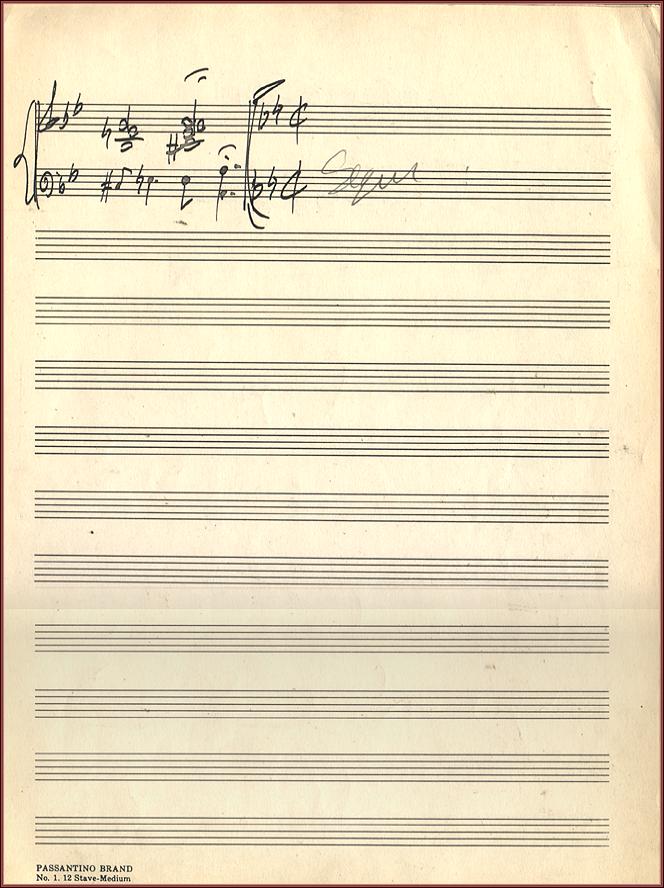 Segue
PASSANTINO BRAND
No. 1. 12 Stave-Medium